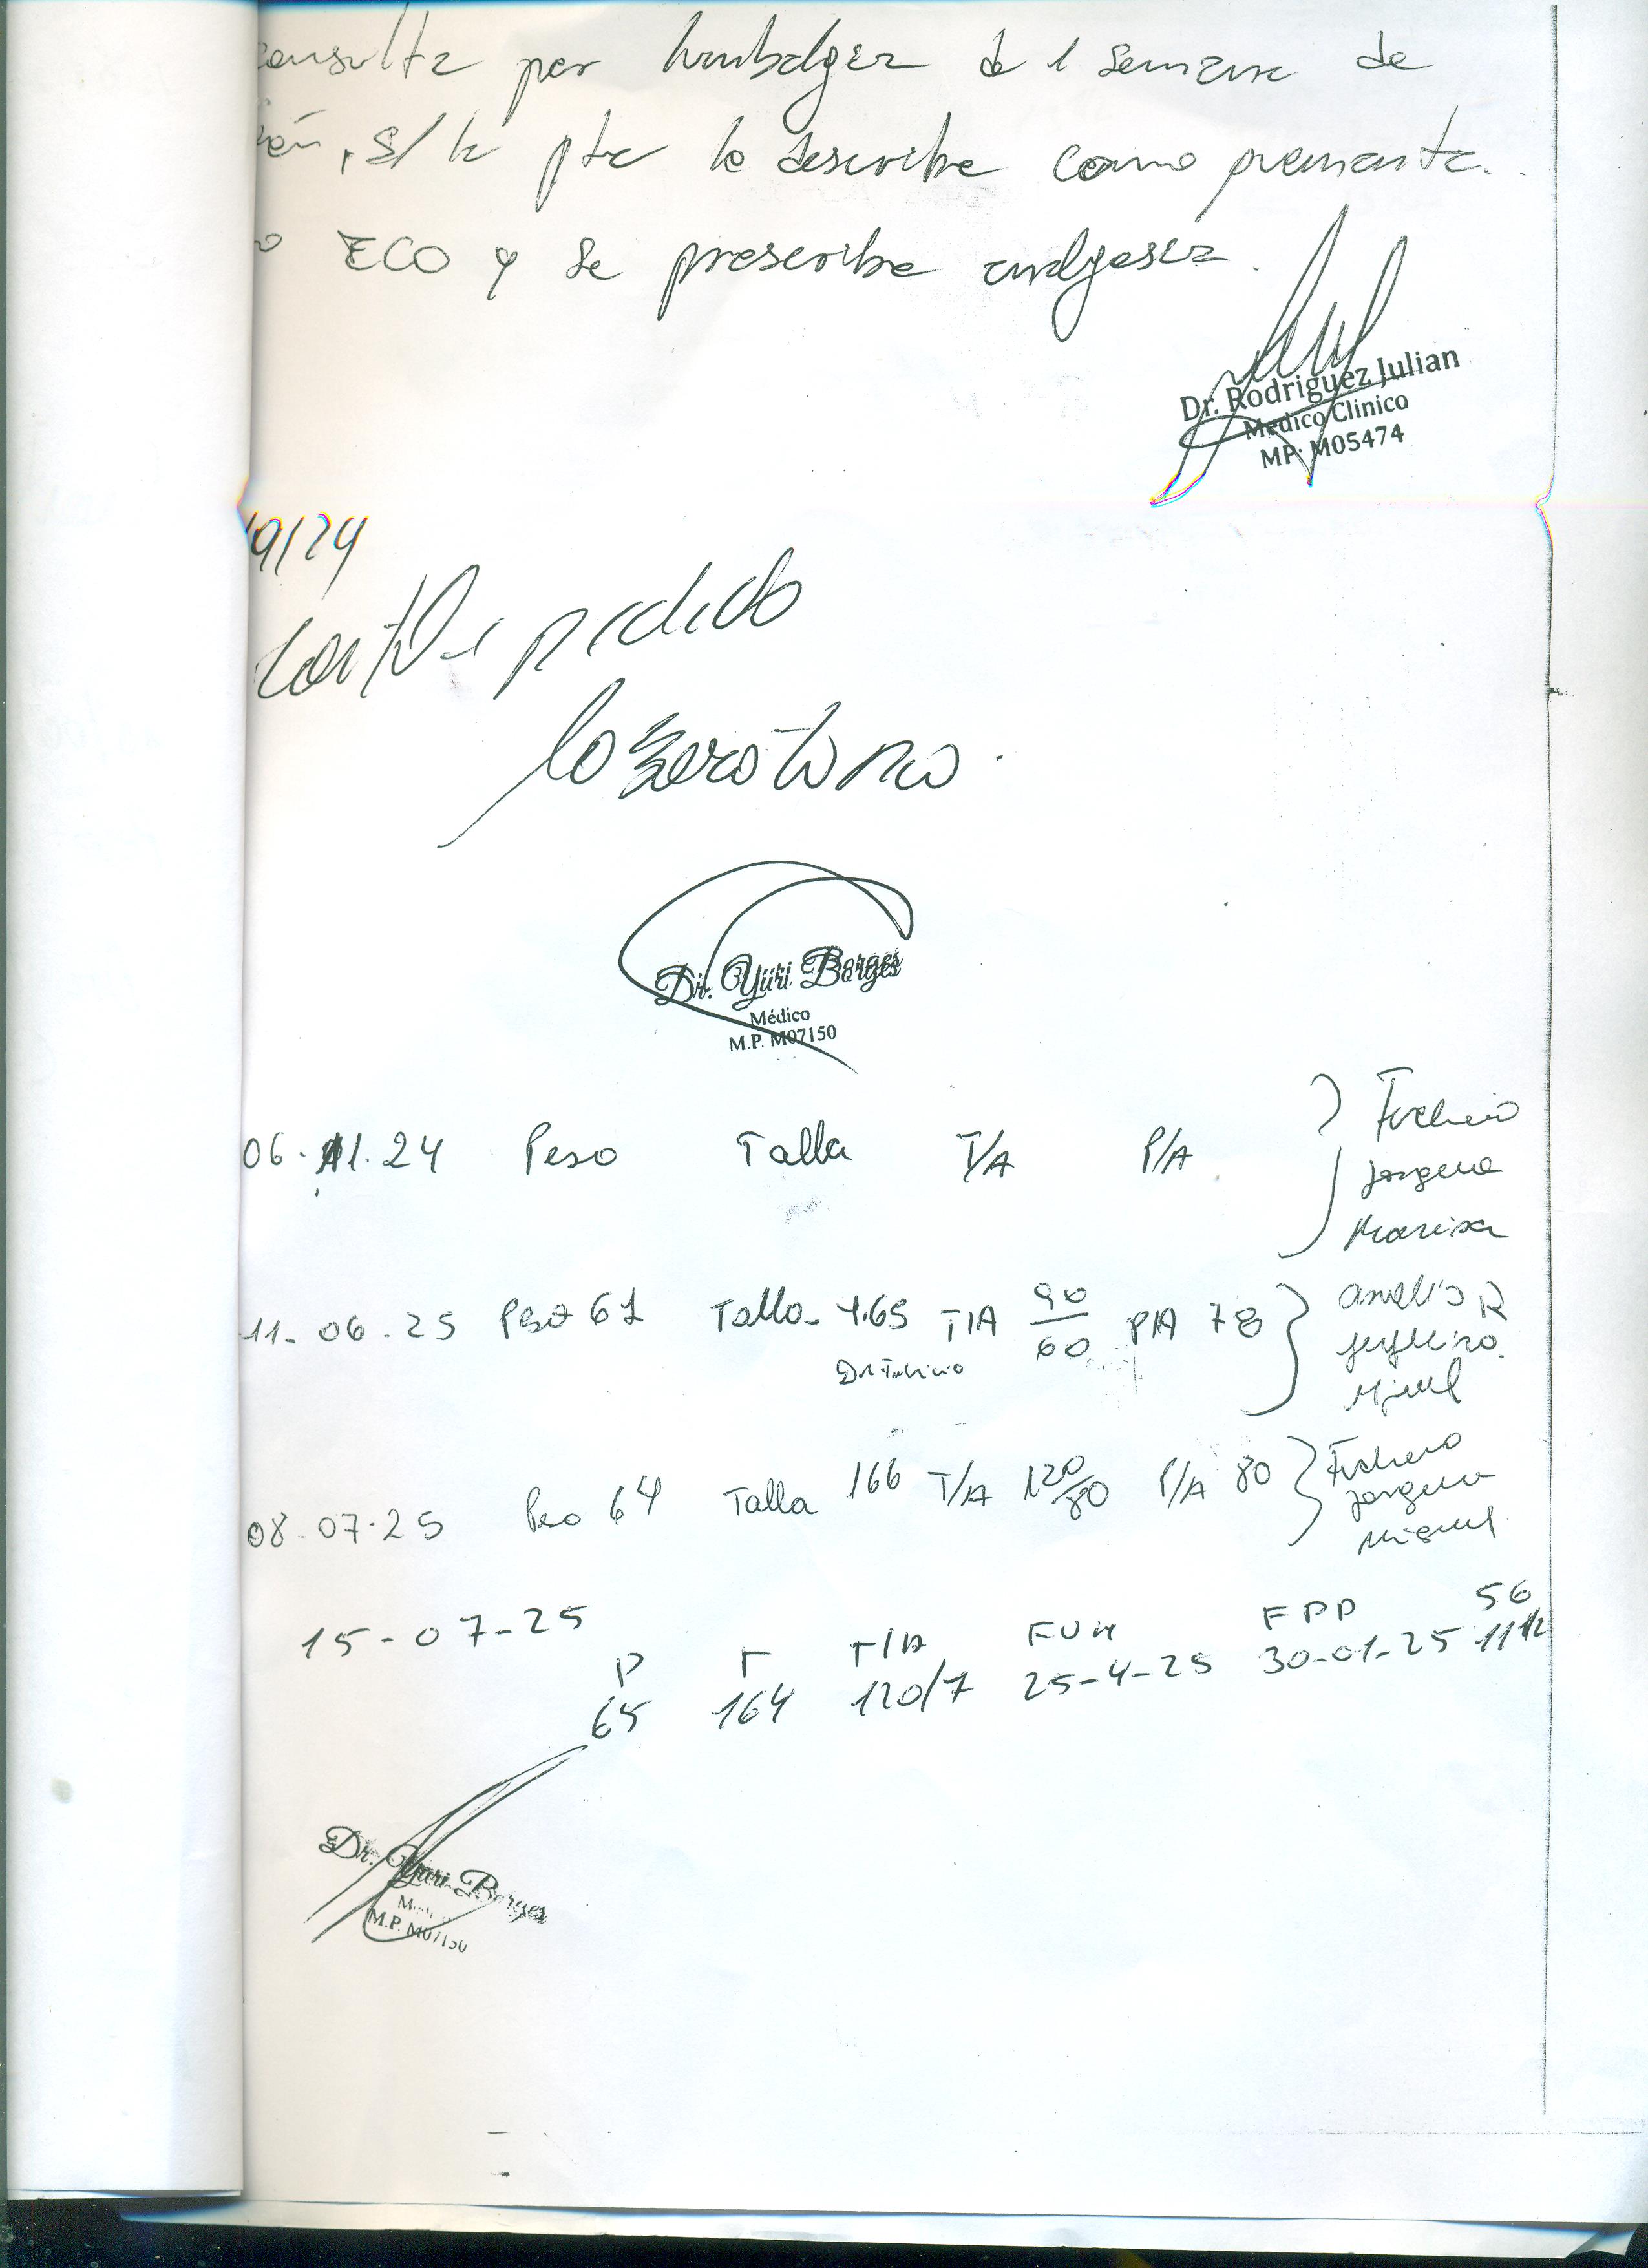 consulta por lumbalgia de 1 semana de
ión, s/ la pte lo describe como punzante.
o ECO y se prescribe analgesia.
Dr. Rodriguez Julian
Medico Clinico
MP: M05474
/9/24
pedido
Dr. Yuri Borges
Médico
M.P. M07150
06.11.24 Peso Talla T/A P/A
Marisa
11-06-25 Peso 61 Talla 1.65 T/A 90/60 P/A 78
08.07.25 Peso 64 Talla 166 T/A 120/80 P/A 80
Miguel
15-07-25
P T T/A FUM FPP SG
65 164 120/7 25-4-25 30-01-25 11 1/2
Dr. Yuri Borges
M.P. M07150